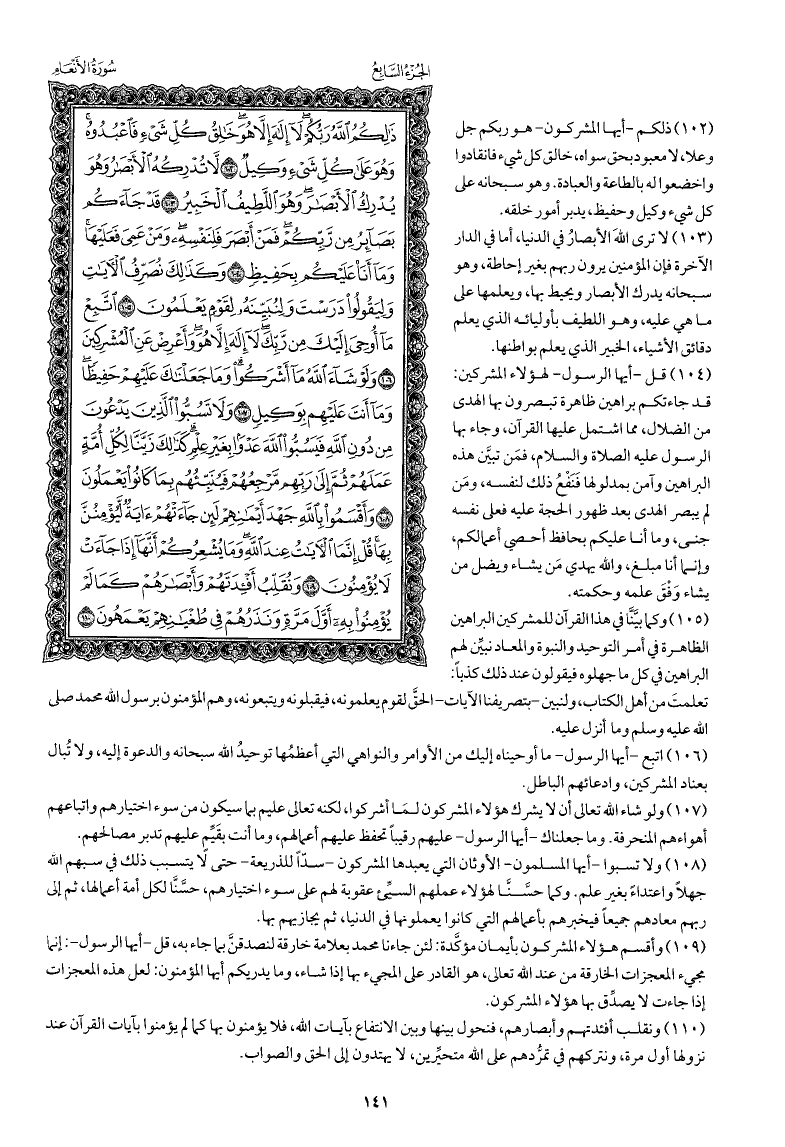 الجزء السابع
سورة الأنعام
ذَٰلِكُمُ ٱللَّهُ رَبُّكُمْ لَآ إِلَٰهَ إِلَّا هُوَ خَٰلِقُ كُلِّ شَىْءٍ فَٱعْبُدُوهُ
وَهُوَ عَلَىٰ كُلِّ شَىْءٍ وَكِيلٌ ١٠٢ لَّا تُدْرِكُهُ ٱلْأَبْصَٰرُ وَهُوَ
يُدْرِكُ ٱلْأَبْصَٰرَ وَهُوَ ٱللَّطِيفُ ٱلْخَبِيرُ ١٠٣ قَدْ جَآءَكُم
بَصَآئِرُ مِن رَّبِّكُمْ فَمَنْ أَبْصَرَ فَلِنَفْسِهِۦ وَمَنْ عَمِىَ فَعَلَيْهَا
وَمَآ أَنَا۠ عَلَيْكُم بِحَفِيظٍ ١٠٤ وَكَذَٰلِكَ نُصَرِّفُ ٱلْءَايَٰتِ
وَلِيَقُولُوا۟ دَرَسْتَ وَلِنُبَيِّنَهُۥ لِقَوْمٍ يَعْلَمُونَ ١٠٥ ٱتَّبِعْ
مَآ أُوحِىَ إِلَيْكَ مِن رَّبِّكَ لَآ إِلَٰهَ إِلَّا هُوَ وَأَعْرِضْ عَنِ ٱلْمُشْرِكِينَ
١٠٦ وَلَوْ شَآءَ ٱللَّهُ مَآ أَشْرَكُوا۟ وَمَا جَعَلْنَٰكَ عَلَيْهِمْ حَفِيظًا
وَمَآ أَنتَ عَلَيْهِم بِوَكِيلٍ ١٠٧ وَلَا تَسُبُّوا۟ ٱلَّذِينَ يَدْعُونَ
مِن دُونِ ٱللَّهِ فَيَسُبُّوا۟ ٱللَّهَ عَدْوًۢا بِغَيْرِ عِلْمٍ كَذَٰلِكَ زَيَّنَّا لِكُلِّ أُمَّةٍ
عَمَلَهُمْ ثُمَّ إِلَىٰ رَبِّهِم مَّرْجِعُهُمْ فَيُنَبِّئُهُم بِمَا كَانُوا۟ يَعْمَلُونَ
١٠٨ وَأَقْسَمُوا۟ بِٱللَّهِ جَهْدَ أَيْمَٰنِهِمْ لَئِن جَآءَتْهُمْ ءَايَةٌ لَّيُؤْمِنُنَّ
بِهَا قُلْ إِنَّمَا ٱلْءَايَٰتُ عِندَ ٱللَّهِ وَمَا يُشْعِرُكُمْ أَنَّهَآ إِذَا جَآءَتْ
لَا يُؤْمِنُونَ ١٠٩ وَنُقَلِّبُ أَفْـِٔدَتَهُمْ وَأَبْصَٰرَهُمْ كَمَا لَمْ
يُؤْمِنُوا۟ بِهِۦٓ أَوَّلَ مَرَّةٍ وَنَذَرُهُمْ فِى طُغْيَٰنِهِمْ يَعْمَهُونَ ١١٠
(١٠٢) ذلكم -أيها المشركون- هو ربكم جل
وعلا، لا معبود بحق سواه، خالق كل شيء فانقادوا
واخضعوا له بالطاعة والعبادة. وهو سبحانه على
كل شيء وكيل وحفيظ، يدبر أمور خلقه.
(١٠٣) لا ترى اللهَ الأبصارُ في الدنيا، أما في الدار
الآخرة فإن المؤمنين يرون ربهم بغير إحاطة، وهو
سبحانه يدرك الأبصار ويحيط بها، ويعلمها على
ما هي عليه، وهو اللطيف بأوليائه الذي يعلم
دقائق الأشياء، الخبير الذي يعلم بواطنها.
(١٠٤) قل -أيها الرسول- لهؤلاء المشركين:
قد جاءتكم براهين ظاهرة تبصرون بها الهدى
من الضلال، مما اشتمل عليها القرآن، وجاء بها
الرسول عليه الصلاة والسلام، فمَن تبيَّن هذه
البراهين وآمن بمدلولها فنَفْعُ ذلك لنفسه، ومَن
لم يبصر الهدى بعد ظهور الحجة عليه فعلى نفسه
جنى، وما أنا عليكم بحافظ أحصي أعمالكم،
وإنما أنا مبلغ، والله يهدي مَن يشاء ويضل من
يشاء وَفْقَ علمه وحكمته.
(١٠٥) وكما بيَّنَّا في هذا القرآن للمشركين البراهين
الظاهرة في أمر التوحيد والنبوة والمعاد نبيِّن لهم
البراهين في كل ما جهلوه فيقولون عند ذلك كذباً:
تعلمتَ من أهل الكتاب، ولنبين -بتصريفنا الآيات- الحقَّ لقوم يعلمونه، فيقبلونه ويتبعونه، وهم المؤمنون برسول الله محمد صلى
الله عليه وسلم وما أنزل عليه.
(١٠٦) اتبع -أيها الرسول- ما أوحيناه إليك من الأوامر والنواهي التي أعظمُها توحيدُ الله سبحانه والدعوة إليه، ولا تُبال
بعناد المشركين، وادعائهم الباطل.
(١٠٧) ولو شاء الله تعالى أن لا يشرك هؤلاء المشركون لـمَـا أشركوا، لكنه تعالى عليم بما سيكون من سوء اختيارهم واتباعهم
أهواءهم المنحرفة. وما جعلناك -أيها الرسول- عليهم رقيباً تحفظ عليهم أعمالهم، وما أنت بقَيِّم عليهم تدبر مصالحهم.
(١٠٨) ولا تسبوا -أيها المسلمون- الأوثان التي يعبدها المشركون -سدّاً للذريعة- حتى لا يتسبب ذلك في سبهم الله
جهلاً واعتداءً بغير علم. وكما حسَّنَّا لهؤلاء عملهم السيِّئ عقوبة لهم على سوء اختيارهم، حسَّنَّا لكل أمة أعمالها، ثم إلى
ربهم معادهم جميعاً فيخبرهم بأعمالهم التي كانوا يعملونها في الدنيا، ثم يجازيهم بها.
(١٠٩) وأقسم هؤلاء المشركون بأيمان مؤكَّدة: لئن جاءنا محمد بعلامة خارقة لنصدقنَّ بما جاء به، قل -أيها الرسول-: إنما
مجيء المعجزات الخارقة من عند الله تعالى، هو القادر على المجيء بها إذا شاء، وما يدريكم أيها المؤمنون: لعل هذه المعجزات
إذا جاءت لا يصدِّق بها هؤلاء المشركون.
(١١٠) ونقلب أفئدتهم وأبصارهم، فنحول بينها وبين الانتفاع بآيات الله، فلا يؤمنون بها كما لم يؤمنوا بآيات القرآن عند
نزولها أول مرة، ونتركهم في تمرُّدهم على الله متحيِّرين، لا يهتدون إلى الحق والصواب.
١٤١